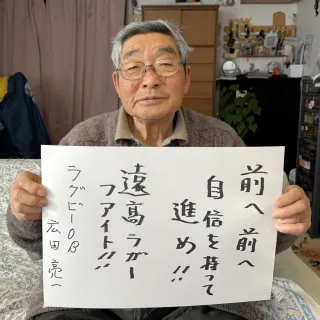 前へ 前へ
自信を持って
進め!!
遠高ラガー
ファイト!!
ラグビーOB
広田 亮一